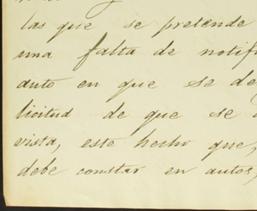 las que se pretende
una falta de notifi
auto en que se de
licitud de que se
vista, este hecho que,
debe constar en autos,